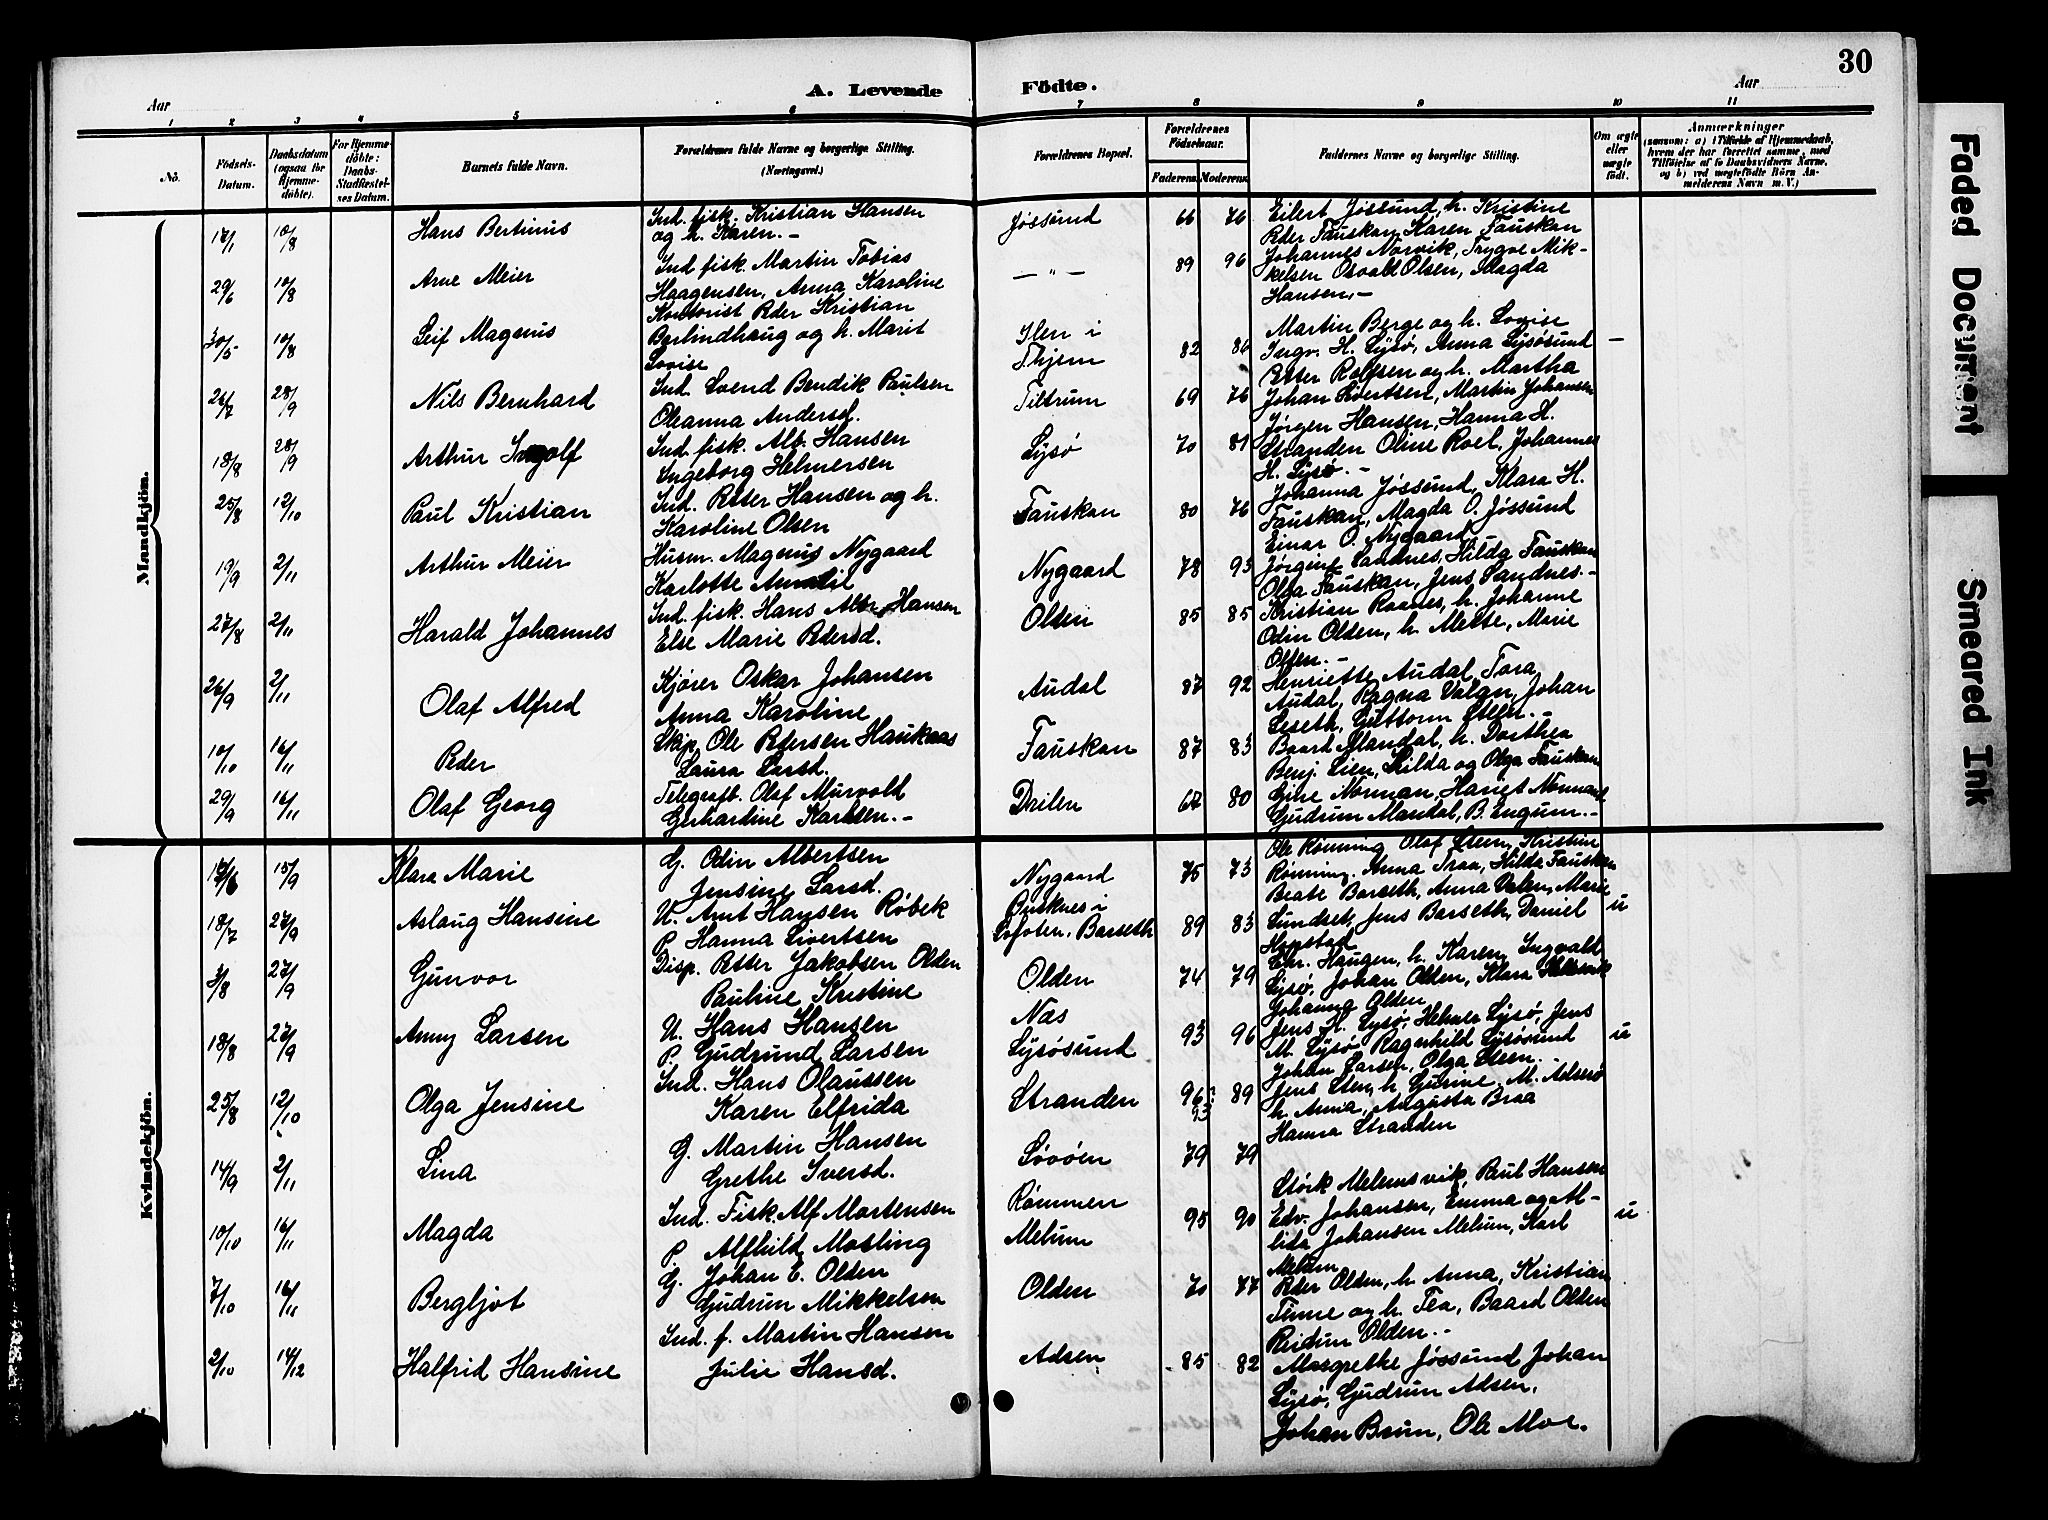 30
Aar
A. Levende Födte.
Aar
1 2 3 4 5 6 7 8 9 10 11
No. Födsels-Datum. Daabsdatum (ogsaa for Hjemmedöbte). For Hjemmedöbte: Daabs-Stadfæstelses Datum. Barnets fulde Navn. Forældrenes fulde Navne og borgerlige Stilling. (Næringsvei.) Forældrenes Bopæl. Forældrenes Födselsaar. Faderens. Moderens. Faddernes Navne og borgerlige Stilling. Om ægte eller uægte födt. Anmærkninger (saasom: a) i Tilfælde af Hjemmedaab, hvem der har forrettet samme, med Tilföielse af to Daabsvidners Navne, og b) ved uægtefödte Börn Anmelderens Navn m. V.)
Mandkjön.
17/1 10/8 Hans Bertinus Ind. fisk. Kristian Hansen og h. Karen.- Jøssund 66 76 Eilert Jøssund, h. Kristine Peder Fauskan, Karen Fauskan
29/6 10/8 Arne Meier Ind fisk. Martin Tobias Haagensen, Anna Karoline — " — 89 96 Johannes Norvik, Trygve Mikkelsen Osvald Olsen, Magda Hansen.-
30/5 10/8 Leif Magnus Kontorist Peder Kristian Berlindhaug og h. Marit Lovise Ilen i Thjem 82 86 Martin Berge og h. Lovise Ingv. H. Lysø, Anna Lysøsund Petter Rolfsen og h. Martha —
26/7 28/9 Nils Bernhard Ind. Svend Bendik Paulsen Oleanna Andersd. Tiltrum 69 76 Johan Sivertsen, Martin Johansen Jørgen Hansen, Hanna H.
18/8 28/9 Arthur Ingolf Ind. fisk. Alb. Hansen Ingeborg Helmersen Lysø 70 81 Stranden Oline Roel, Johannes H. Lysø.-
25/8 12/10 Paul Kristian Ind. Petter Hansen og h. Karoline Olsen Fauskan 80 76 Johanna Jøssund, Klara H. Fauskan, Magda O. Jøssund Einar O. Nygaard
19/9 2/11 Arthur Meier Husm. Magnus Nygaard Karlotte Nygaard 78 93 Jørgine Sandnes, Hilda Fauskan Olga Fauskan, Jens Sandnes.-
27/8 2/11 Harald Johannes Ind. fisk. Hans Alb. Hansen Else Marie Pedersd. Olden 85 85 Kristian Raanes, h. Johanne Odin Olden, h. Mette, Marie Olsen.-
26/9 2/11 Olaf Alfred Kjører Oskar Johansen Anna Karoline Audal 87 92 Henriette Audal, Tora Audal, Ragna Valan, Johan Leseth, Guttorm Steen.-
10/10 16/11 Peder Skip. Ole Pedersen Haukaas Laura Larsd. Fauskan 87 83 Baard Mandal, h. Dorthea Benj. Lien, Hilda og Olga Fauskan
29/9 16/11 Olaf Georg Telegrafb. Olaf Murvold Gerhardine Karlsen.- Drilen 67 80 Eine Norman, Hariet Normand Gudrun Mandal, B. Engum.-
Kvindekjön.
15/9 Klara Marie G. Odin Albertsen Jensine Larsd. Nygaard 75 73 Ole Rønning Olaf Steen, Kristine Rønning. Anna Traa, Hilda Fauskan
18/7 27/9 Aslaug Hansine U. Amt Hansen Røbek P. Hanna Sivertsen i Lofoten. Barseth 89 83 Beate Barseth, Anna Valen, Marie Sundset, Jens Barseth, Daniel Hopstad u
3/8 27/9 Gunvor Disp. Petter Jakobsen Olden Pauline Kristine Olden 74 79 Chr. Haugen, h. Karen, Ingvald Lysø, Johan Olden, Klara Johanna Olden
18/8 27/9 Anny Larsen U. Hans Hansen P. Gudrund Larsen Næs Lysøsund 93 96 Jens H. Lysø, Helmer Lysø, Jens M. Lysø Ragnhild Lysøsund Johan Larsen, Olga Steen. u
25/8 12/10 Olga Jensine Ind. Hans Olaussen Karen Elfrida Stranden 96 93 89 Jens Sten, h. Gurine, M. Adserø h. Anna, Augusta Braa Hanna Stranden
14/9 2/11 Lina G. Martin Hansen Grethe Iversd. Søvøen 79 79
10/10 16/11 Magda Ind. Fisk. Alf Mortensen P. Alfhild Mosling Rømmen Melum 95 90 Størk Melumsvik, Paul Hansen Edv. Johansen, Emma og Alida Johansen Melum, Karl Melum u
7/10 16/11 Bergljot G. Johan E. Olden Gudrun Mikkelsen Olden 70 77 Peder Olden, h. Anna, Kristian Finne og h. Tea, Baard Olden Reidun Olden.-
2/10 14/12 Halfrid Hansine Ind. f. Martin Hansen Julie Hansd. Adsen 85 82 Margrethe Jøssund Johan Lysø, Gudrun Adsen, Johan Brun, Ole Moe.
Faded Document
Smeared Ink